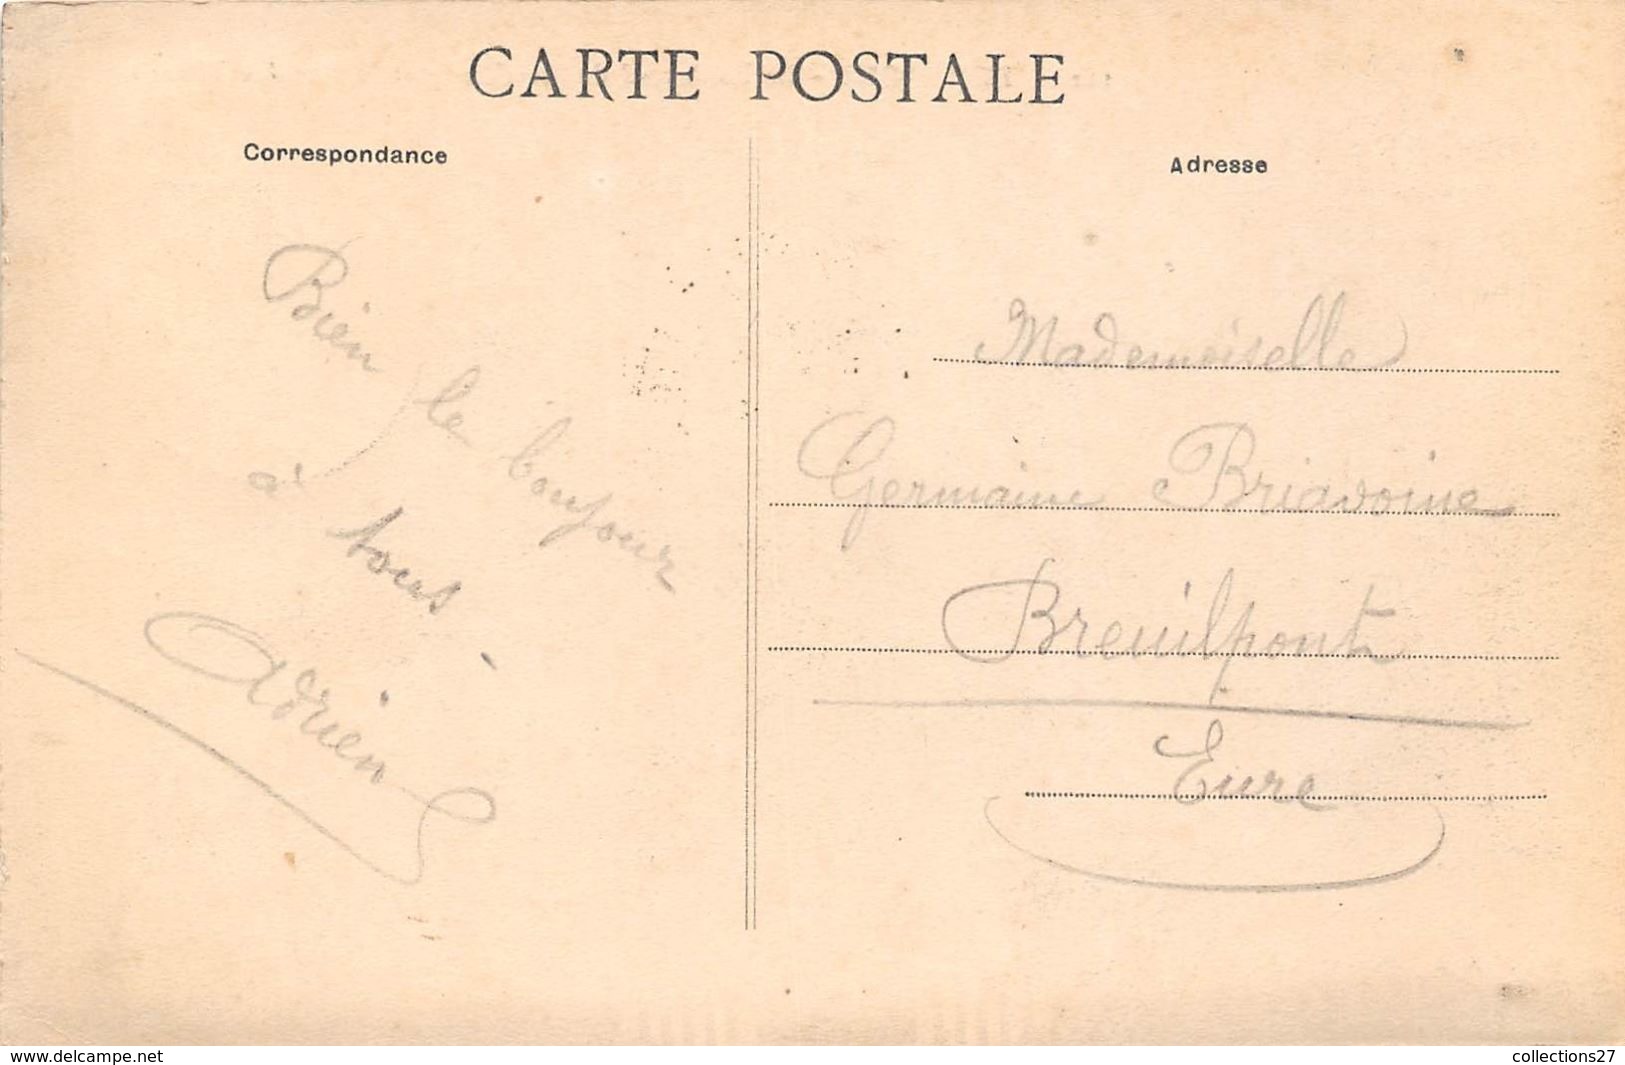 CARTE POSTALE
Correspondance
Bien le bonjour
à tous.
Adrien
Adresse
Mademoiselle
Germaine Briavoine
Breuilpont
Eure
www.delcampe.net
collections27